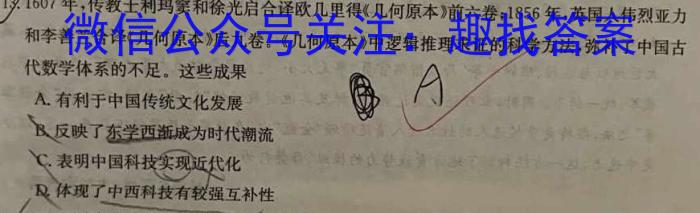 13.1607年,传教士利玛窦和徐光启合译欧几里得《几何原本》前六卷,1856年,英国人伟烈亚力
和李善 合译《几何原本》后九卷。《几何原本》中逻辑推理 的科学方法,弥补了中国古
微信公众号关注:趣找答案
代数学体系的不足。这些成果
A.有利于中国传统文化发展
A
B.反映了东学西渐成为时代潮流
C.表明中国科技实现近代化
D.体现了中西科技有较强互补性